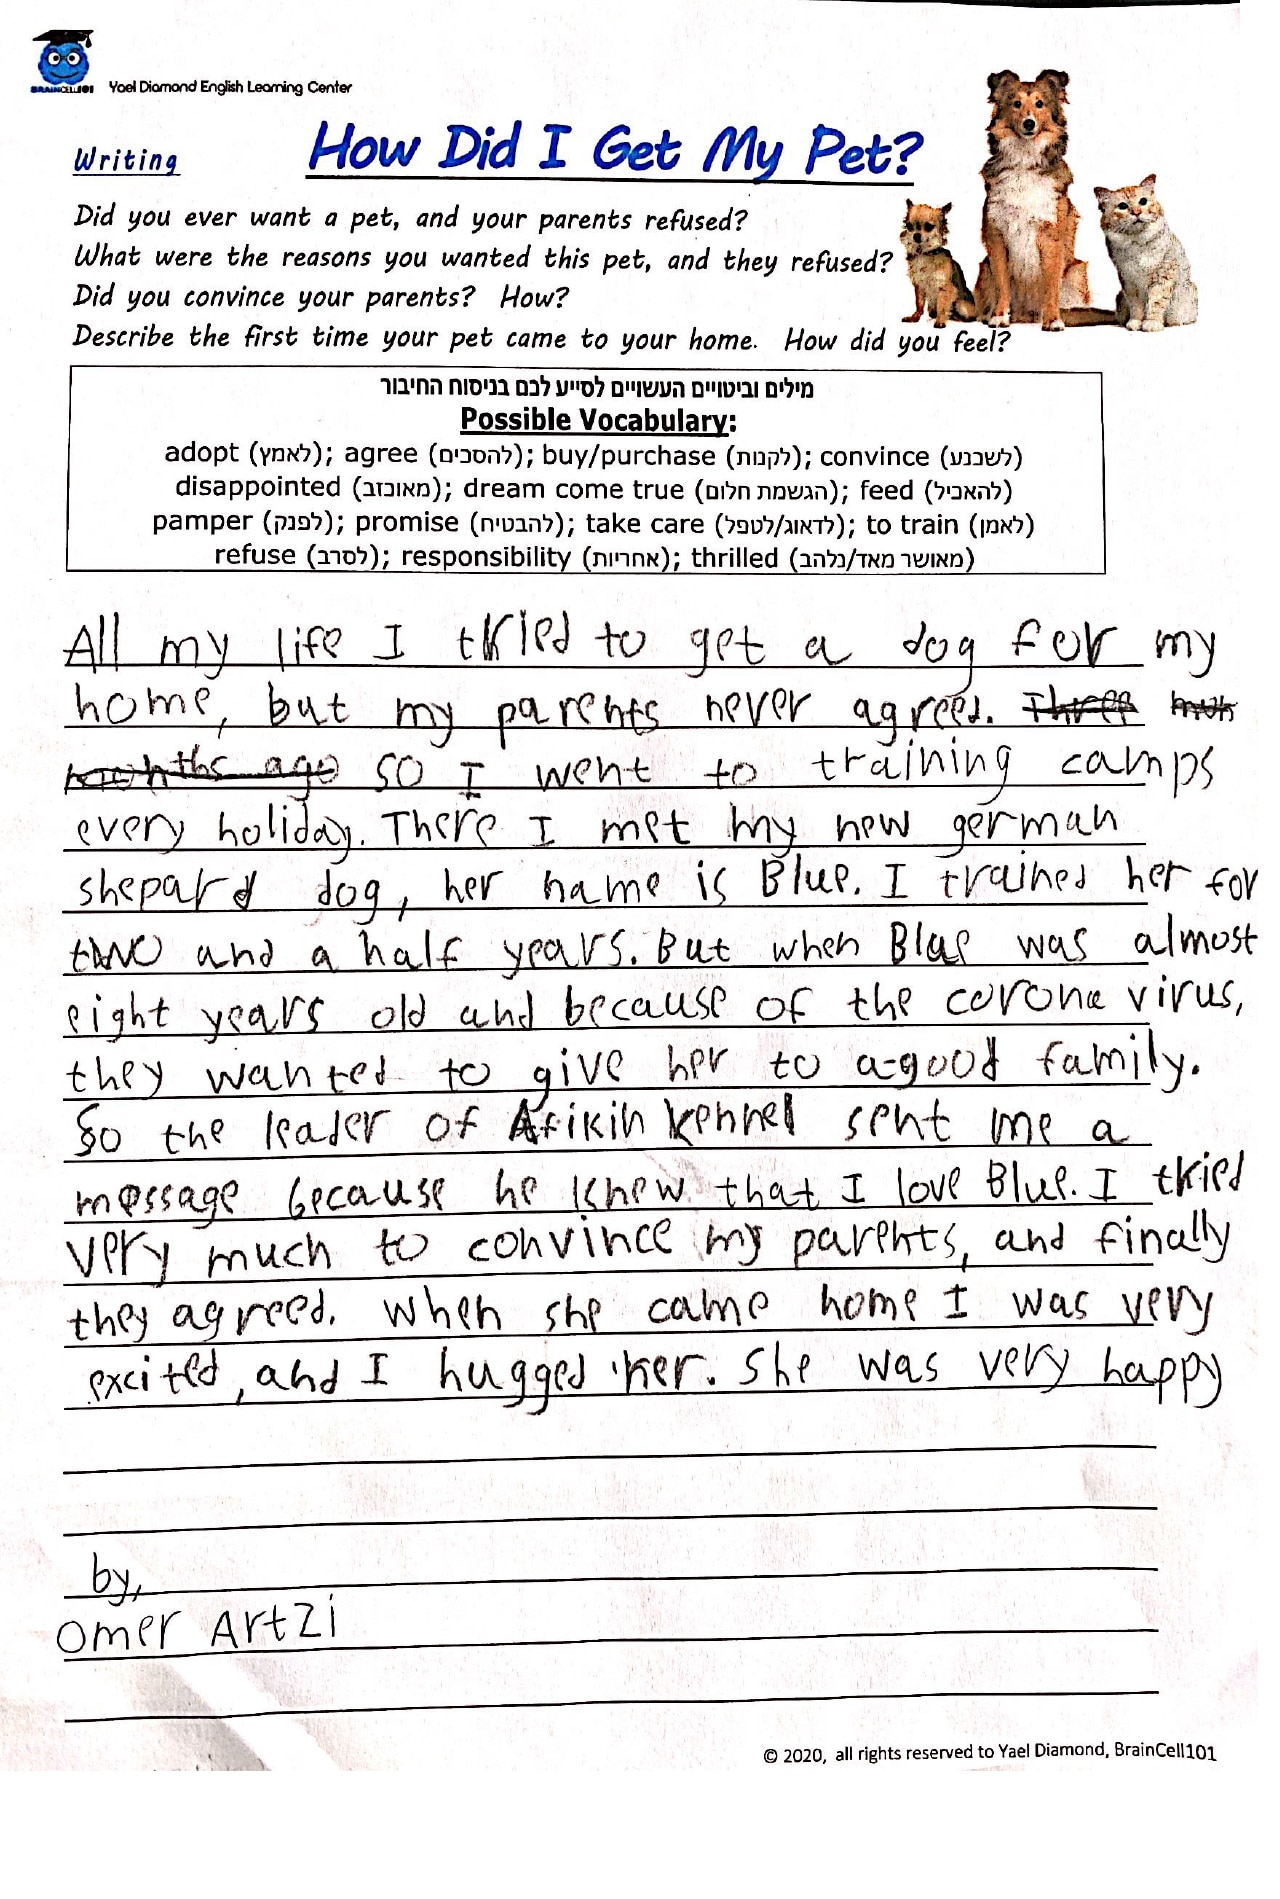 BRAINCELL101 Yael Diamond English Learning Center
Writing How Did I Get My Pet?
Did you ever want a pet, and your parents refused?
What were the reasons you wanted this pet, and they refused?
Did you convince your parents? How?
Describe the first time your pet came to your home. How did you feel?
מילים וביטויים העשויים לסייע לכם בניסוח החיבור
Possible Vocabulary:
adopt (לאמץ); agree (להסכים); buy/purchase (לקנות); convince (לשכנע)
disappointed (מאוכזב); dream come true (הגשמת חלום); feed (להאכיל)
pamper (לפנק); promise (להבטיח); take care (לדאוג/לטפל); to train (לאמן)
refuse (לסרב); responsibility (אחריות); thrilled (מאושר מאד/נלהב)
All my life I tried to get a dog for my
home, but my parents never agreed. Three
months ago so I went to training camps
every holiday. There I met my new german
shepard dog, her name is Blue. I trained her for
two and a half years. But when Blue was almost
eight years old and because of the corona virus,
they wanted to give her to a good family.
So the leader of Afikin kennel sent me a
message because he knew that I love Blue. I tried
very much to convince my parents, and finally
they agreed. When she came home I was very
excited, and I hugged her. She was very happy
by,
Omer Artzi
© 2020, all rights reserved to Yael Diamond, BrainCell101